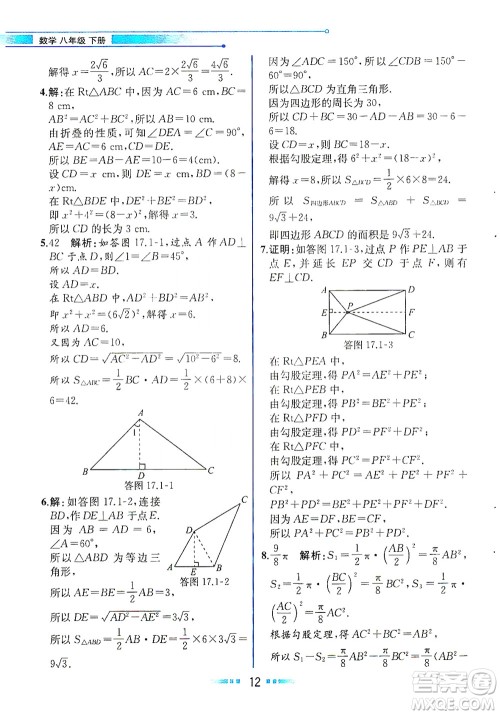 数学 八年级 下册
解得 x=2√6/3, 所以 AC=2×2√6/3=4√6/3.
4.解: 在 Rt△ABC 中, AC=6 cm, BC=8 cm,
AB²=AC²+BC²=100, 所以 AB=10 cm.
由折叠的性质,∠DEA=∠C=90°,
AE=AC=6 cm, CD=DE.
设 CD=x, 则 DE=x, BD=8-x.
所以 BE=AB-AE=4.
在 Rt△BDE 中, DE²+BE²=BD²,
即 x²+4²=(8-x)². 解得 x=3.
所以 CD=3 cm.
5.42 解析: 如答图 17.1-1, 过点 A 作 AD⊥BC 于点 D. 因为∠B=45°,
所以 AD=BD.
在 Rt△ABD 中, AD²+BD²=AB²,
即 2AD²=(6√2)². 所以 AD=6.
又因为 AC=10,
所以 CD=√AC²-AD²=√10²-6²=8.
所以 S△ABC=1/2 BC·AD=1/2×(6+8)×6=42.
A
B
D
C
答图 17.1-1
6.解: 如答图 17.1-2, 连接 BD, 作 DE⊥AB 于点 E.
因为 AB=AD=6,
∠A=60°,
所以△ABD 为等边三角形,
D
A
E
B
C
答图 17.1-2
所以 AE=BE=1/2 AB=3.
所以 DE=√AD²-AE²=3√3.
所以 S△ABD=1/2 AB·DE=1/2×6×3√3=
9√3.
因为∠ADC=150°, 所以∠CDB=
150°-60°=90°.
所以△BCD 为直角三角形.
因为四边形的周长为 30,
所以 CD+BC=30-AD-AB=30-6-6=18.
设 CD=x, 则 BC=18-x.
根据勾股定理, 得 6²+x²=(18-x)².
解得 x=8. 所以 S△BCD=1/2×6×8=24.
所以 S四边形ABCD=S△ABD+S△BCD=9√3+24,
即四边形 ABCD 的面积是 9√3+24.
7.证明: 如答图 17.1-3, 过点 P 作 PE⊥AB 于点 E, 并延长 EP 交 CD 于点 F.
A
D
E
P
F
B
C
答图 17.1-3
在 Rt△PEA 中,
由勾股定理, 得 PA²=AE²+PE².
在 Rt△PEB 中,
由勾股定理, 得 PB²=BE²+PE².
在 Rt△PFD 中,
由勾股定理, 得 PD²=DF²+PF².
在 Rt△PFC 中,
由勾股定理, 得 PC²=PF²+CF².
所以 PA²+PC²=AE²+PE²+PF²+CF²,
PB²+PD²=BE²+PE²+DF²+PF².
因为 AE=DF, CF=BE,
所以 PA²+PC²=PB²+PD².
8. 9/8π 解析: S₁=1/2π·(AB/2)²=π/8 AB²,
S₂=1/2π·(BC/2)²=π/8 BC², S₃=1/2π·
(AC/2)²=π/8 AC².
根据勾股定理, 得 AC²+BC²=AB².
所以 S₁-S₂=π/8 AB²-π/8 BC²=π/8 AC².
12